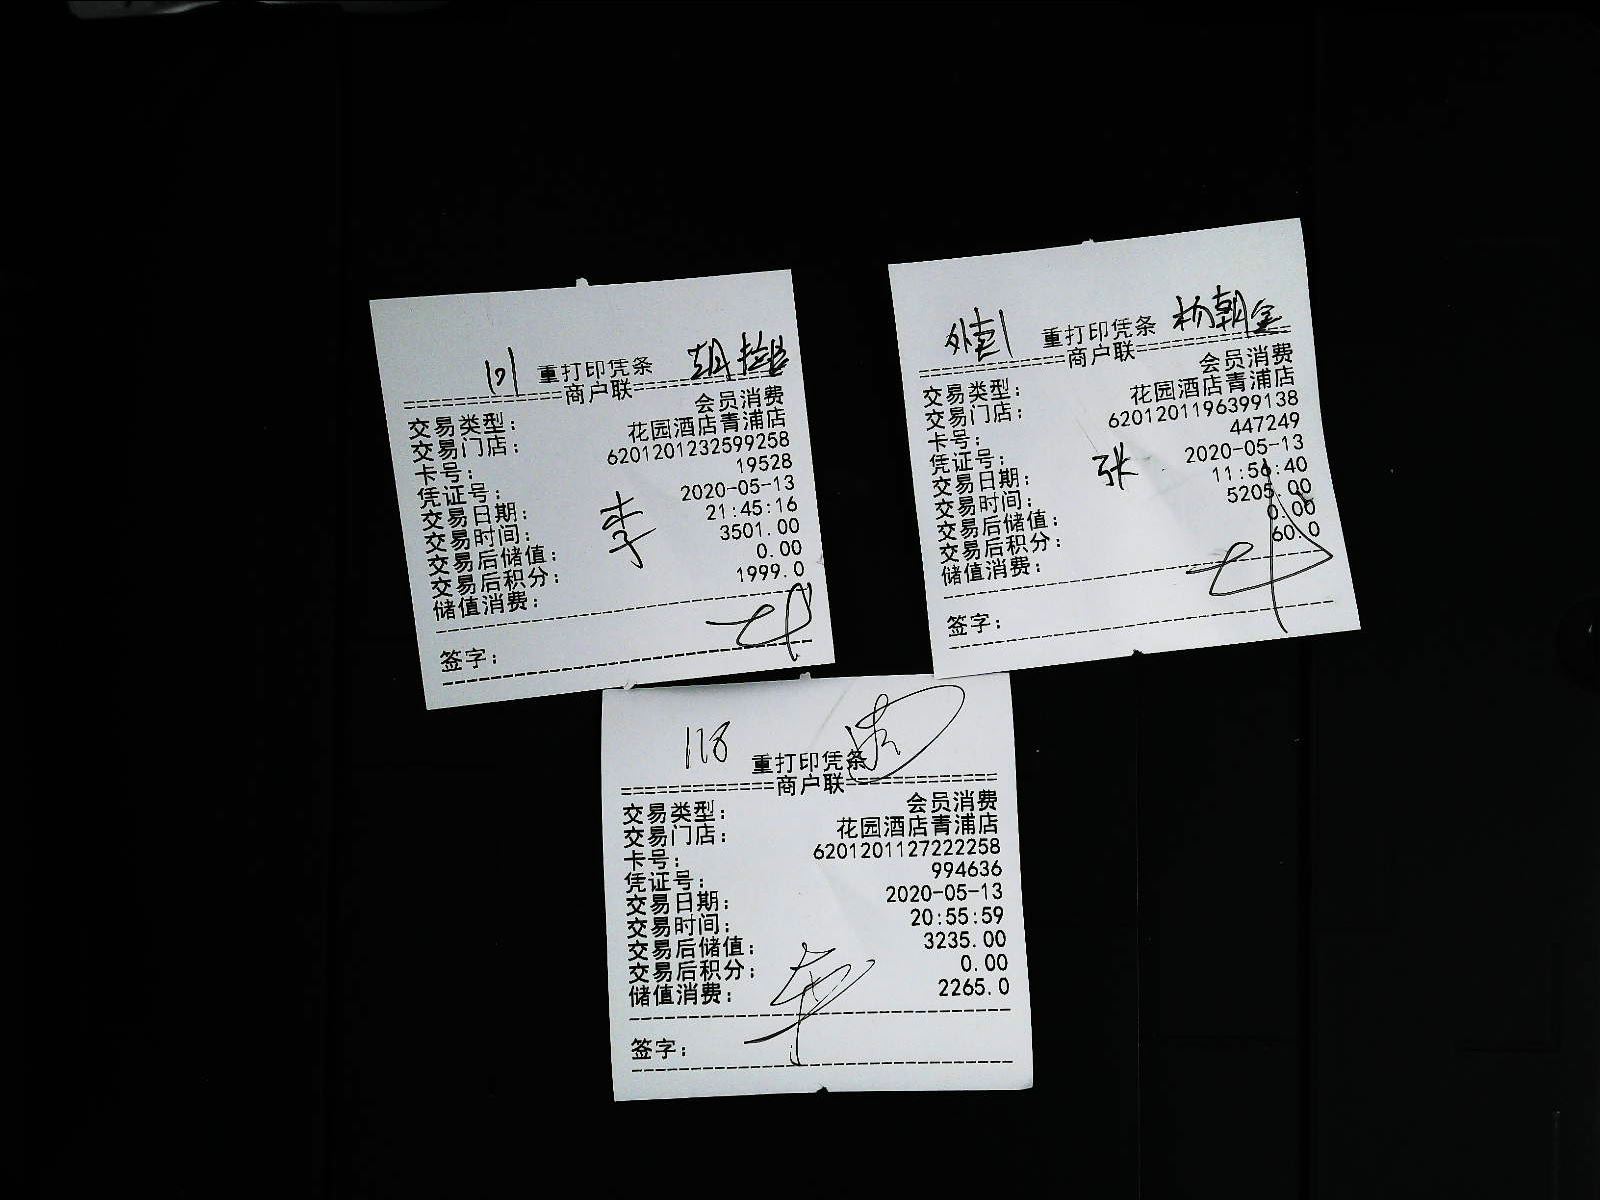 重打印凭条
商户联
交易类型： 会员消费
交易门店： 花园酒店青浦店
卡号： 6201201232599258
凭证号： 19528
交易日期： 2020-05-13
交易时间： 21:45:16
交易后储值： 3501.00
交易后积分： 0.00
储值消费： 1999.0
李
签字：
外卖1 重打印凭条 杨朝金
商户联
交易类型： 会员消费
交易门店： 花园酒店青浦店
卡号： 6201201196399138
凭证号： 447249
交易日期： 2020-05-13
交易时间： 11:56:40
交易后储值： 5205.00
交易后积分： 0.00
储值消费： 60.0
张
签字：
118 重打印凭条
商户联
交易类型： 会员消费
交易门店： 花园酒店青浦店
卡号： 6201201127222258
凭证号： 994636
交易日期： 2020-05-13
交易时间： 20:55:59
交易后储值： 3235.00
交易后积分： 0.00
储值消费： 2265.0
签字：